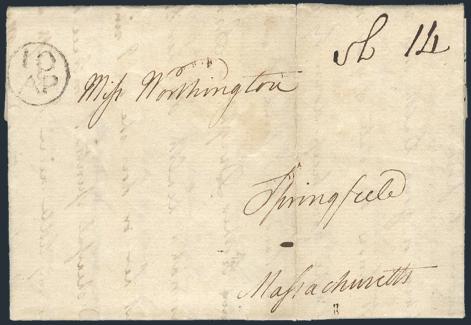 sh 14
10
AP
Miss Worthington
Springfield
Massachusetts